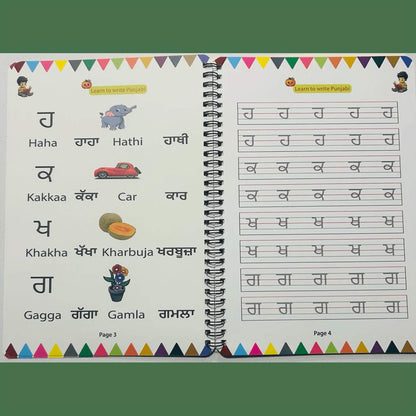 Learn to write Punjabi
ਹ
Haha ਹਾਹਾ Hathi ਹਾਥੀ
ਕ
Kakkaa ਕੱਕਾ Car ਕਾਰ
ਖ
Khakha ਖੱਖਾ Kharbuja ਖਰਬੂਜ਼ਾ
ਗ
Gagga ਗੱਗਾ Gamla ਗਮਲਾ
Page 3
Learn to write Punjabi
ਹ ਹ ਹ ਹ ਹ
ਹ ਹ ਹ ਹ ਹ
ਕ ਕ ਕ ਕ ਕ
ਕ ਕ ਕ ਕ ਕ
ਖ ਖ ਖ ਖ ਖ
ਖ ਖ ਖ ਖ ਖ
ਗ ਗ ਗ ਗ ਗ
ਗ ਗ ਗ ਗ ਗ
Page 4